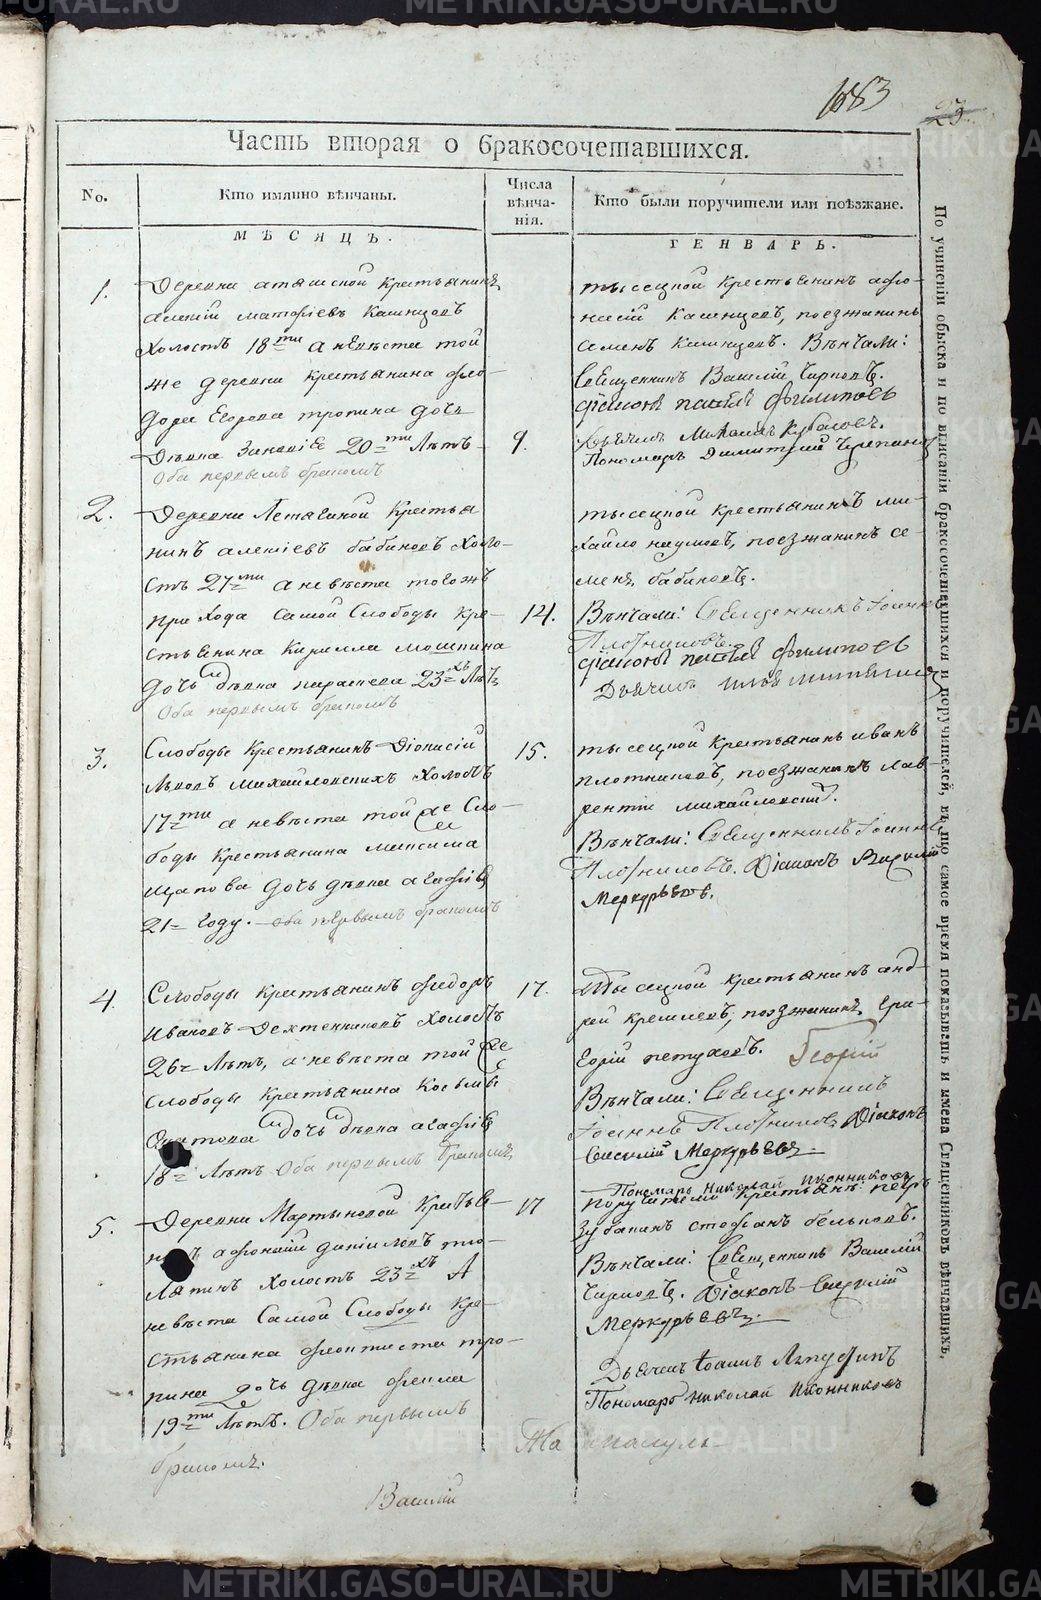 METRIKI.GASO-URAL.RU
1683
23.
Часть вторая о бракосочетавшихся.
No.
Кто имянно вѣнчаны.
Числа вѣнча-нія.
Кто были поручители или поѣзжане.
МѢСЯЦЪ.
ГЕНВАРЬ.
1.
Деревни крестьянинъ
алексій матфіевъ Кашнцовъ
Холостъ 18ти а невѣста той
же деревни крестьянина фео-
дора Егорова тропина дочь
Дѣвка Зиновія 20ти Лѣтъ
Оба первымъ бракомъ
9.
тысецкой крестьянинъ афо-
насій Кашнцовъ, поезжанинъ
семенъ Кашнцовъ. Вѣнчали:
Священникъ Василій Чирковъ.
діаконъ павелъ филиповъ
Дьячекъ Михаилъ
Пономарь Димитрій
2.
Деревни крестья
нинъ алексіевъ бабиновъ Холо-
стъ 27ми а невѣста тогожъ
прихода самой Слободы кре-
стьянина Кирилла
дочь дѣвка параскева 23хъ Лѣтъ
Оба первымъ бракомъ
14.
тысецкой крестьянинъ ми-
хайло наумовъ, поезжанинъ се-
менъ бабиновъ.
Вѣнчали: Священникъ Іоаннъ
Плотниковъ.
діаконъ павелъ филиповъ
Дьячекъ Илья
3.
Слободы Крестьянинъ Діонисій
Львовъ михайловскихъ Холостъ
17ти а невѣста той же Сло-
боды крестьянина максима
щапова дочь дѣвка агафія
21 году. Оба первымъ бракомъ
15.
тысецкой крестьянинъ иванъ
плотниковъ, поезжанинъ лав-
рентій михайловский.
Вѣнчали: Священникъ Іоаннъ
Плотниковъ. Діаконъ
Меркурьевъ.
4.
Слободы крестьянинъ феодоръ
Ивановъ Холостъ
26 Лѣтъ, а невѣста той же
слободы крестьянина Косьмы
дочь дѣвка агафія
18 Лѣтъ Оба первымъ бракомъ
17.
Тысецкой крестьянинъ анд-
рей поезжанинъ гри-
горій петуховъ. Георгій
Вѣнчали: Священникъ
Іоаннъ Плотниковъ Діаконъ
Меркурьевъ
Пономарь Николай Иконниковъ
5.
Деревни Мартыновой Крестья-
нинъ афонасій даніиловъ
Холостъ 23хъ А
невѣста Самой Слободы кре-
стьянина феоктиста тро-
пина дочь дѣвка фекла
19ти Лѣтъ. Оба первымъ
бракомъ.
17
поручители крестьяне: петръ
зубакинъ стефанъ бельковъ.
Вѣнчали: Священникъ Василій
Чирковъ. Діаконъ
Меркурьевъ.
Дьячекъ Іоаннъ
Пономарь Николай Иконниковъ
Василій
По учиненіи обыска и по вписаніи бракосочетавшихся и поручителей, въ то самое время показывать и имена Священниковъ вѣнчавшихъ.
METRIKI.GASO-URAL.RU